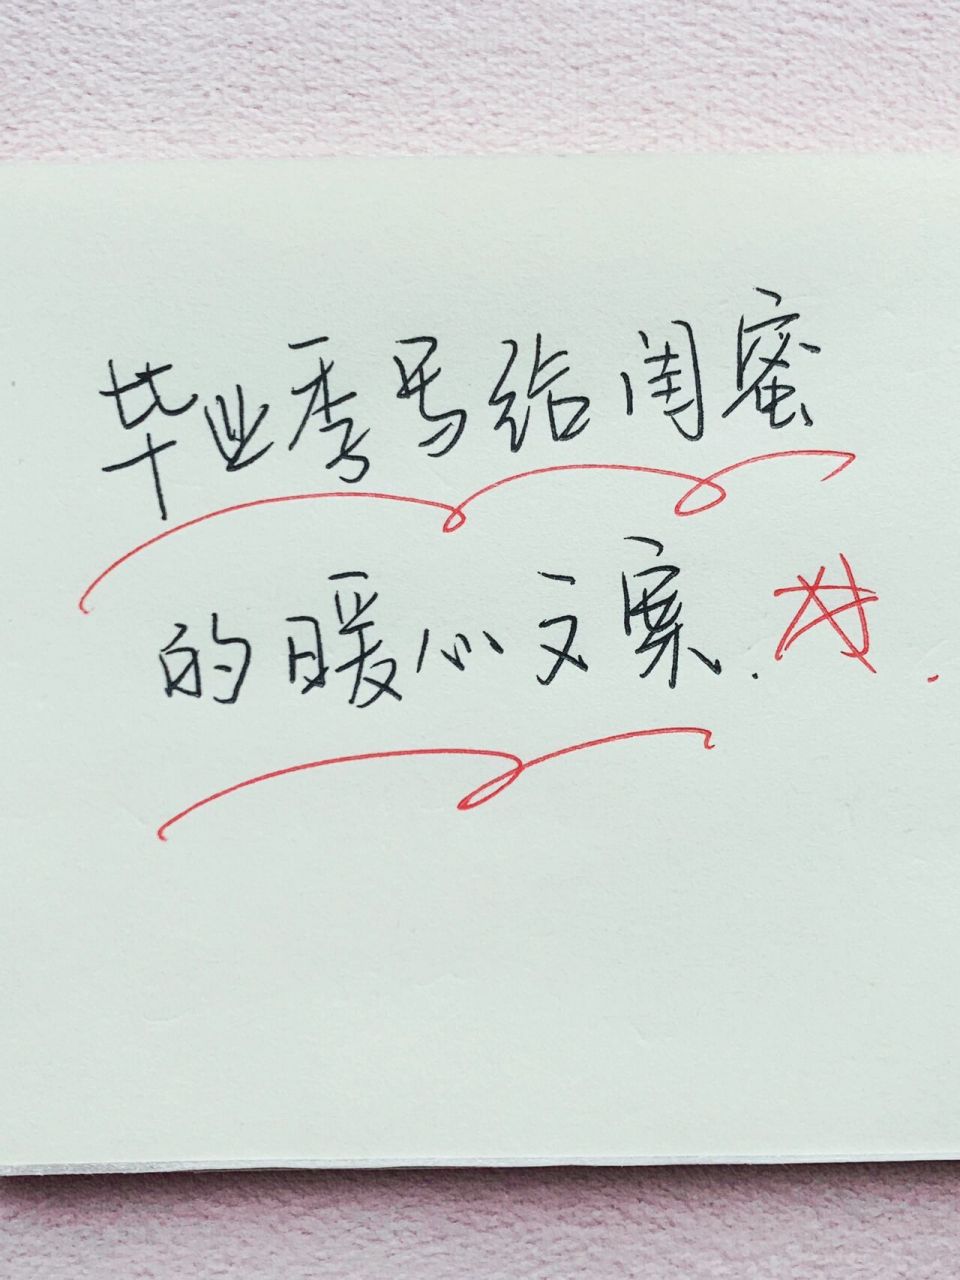 毕业季写给闺蜜
的暖心文案.